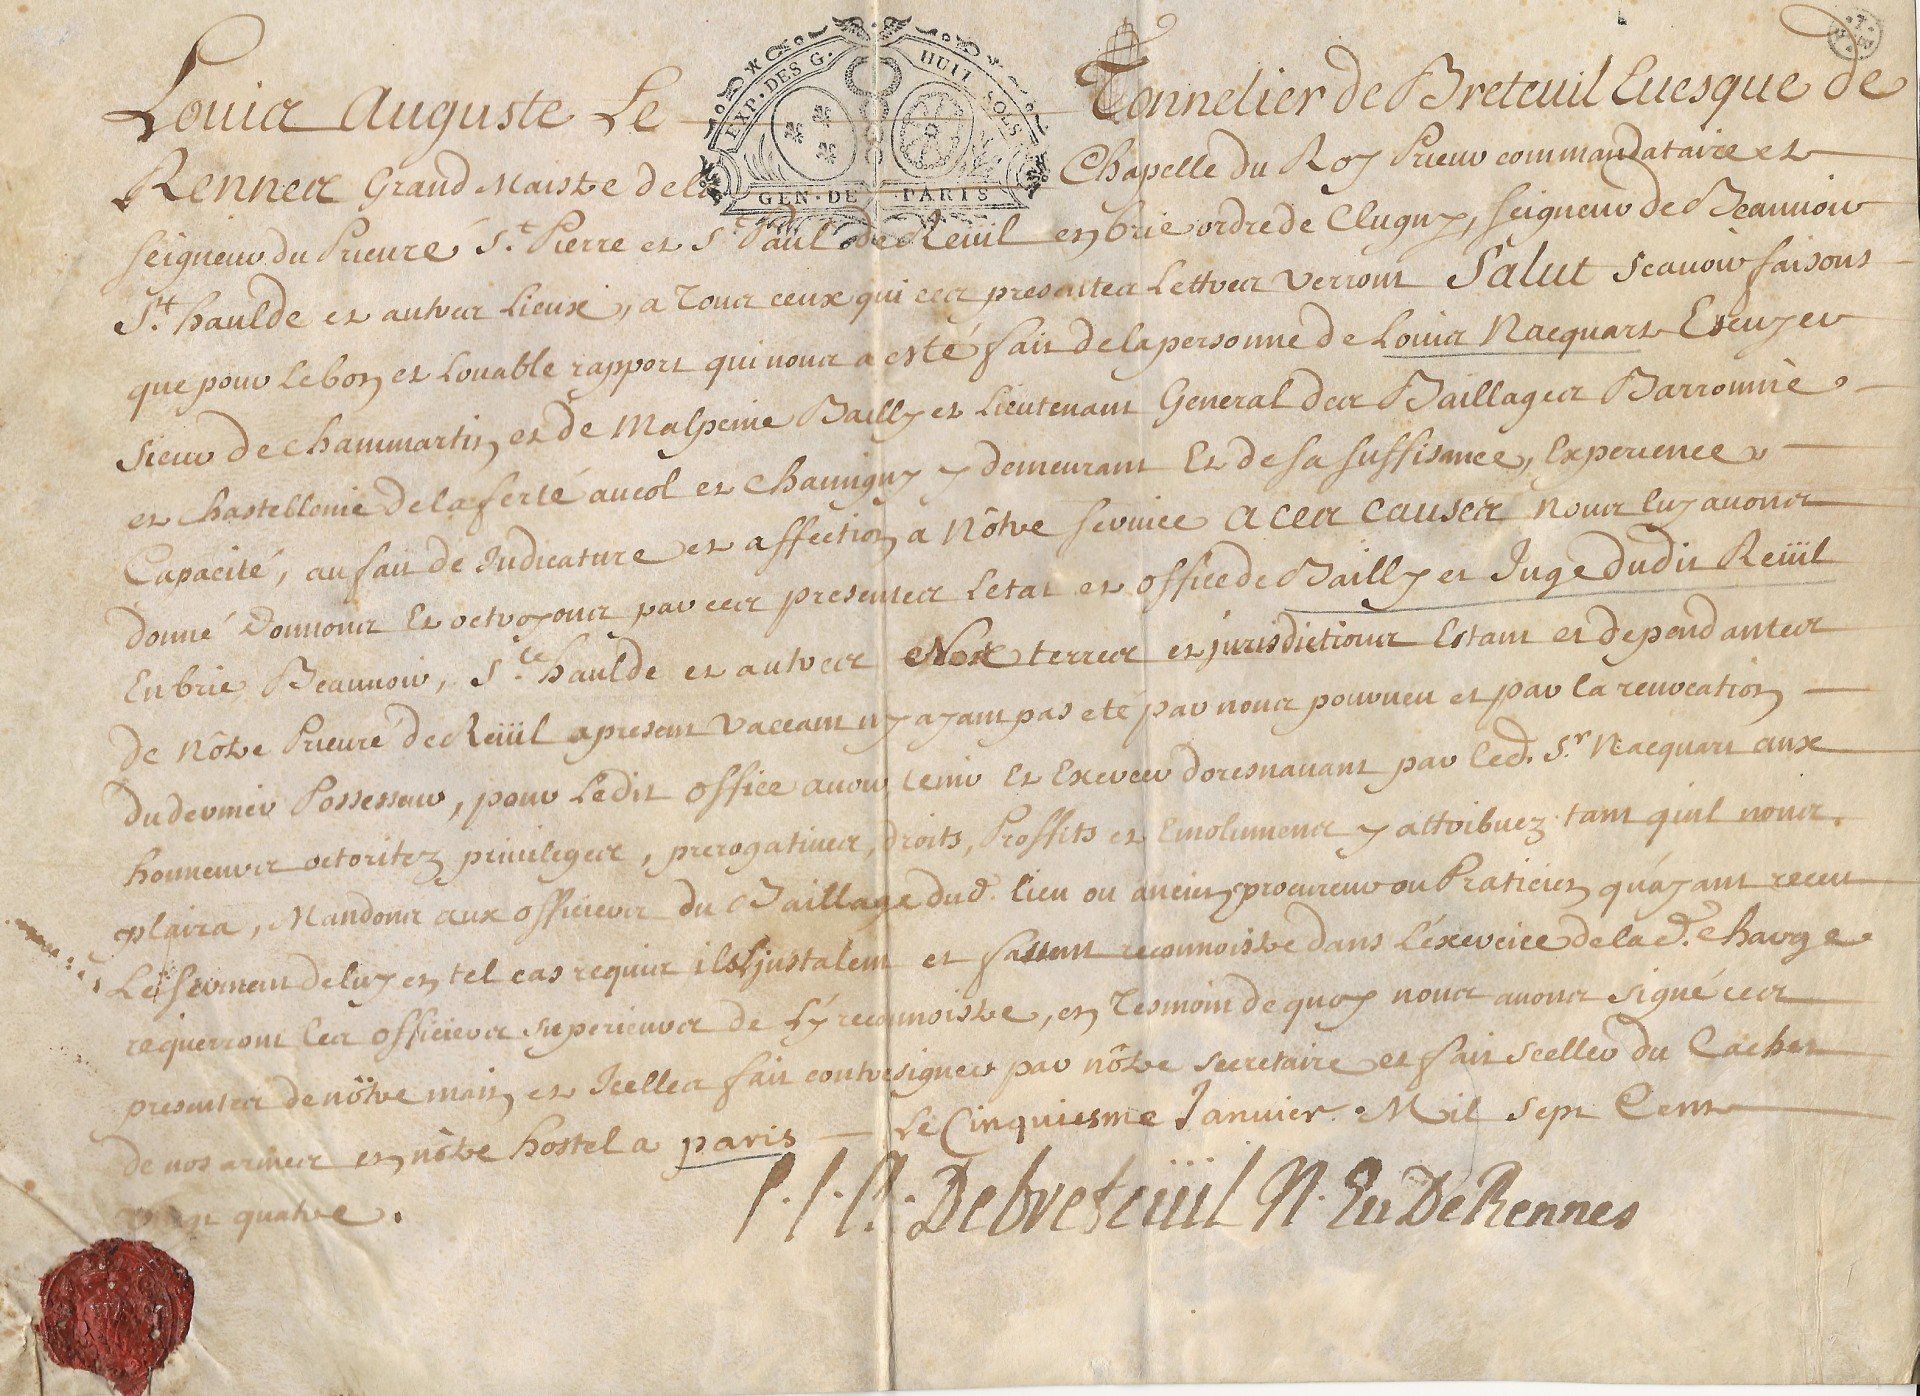 EXP. DES G. HUIT SOLS
GEN. DE PARIS
Louis Auguste Le Tonnelier de Breteuil Euesque de
Rennes Grand Maistre de la Chapelle du Roy Prieur commandataire et
seigneur du Prieuré S.t Pierre et S.t Paul de Reuil en brie ordre de Clugny, seigneur de Beaunoir
S.te haulde et autres Lieux, a Tous ceux qui ces presentes Lettres verront Salut Scauoir faisons
que pour Le bon et Louable rapport qui nous a esté fait de la personne de Louis Nacquart Escuyer
sieur de Chammartin et de Malpeine Bailly et Lieutenant General des Baillages Barronnie
et Chastellenie de la ferté aucol et Chauigny y demeurant Et de sa suffisance, Experience
Capacité, au fait de Judicature et affection a Nôtre seruice A CES CAUSES Nous luy auons
donné Donnons Et octroyons par ces presentes Letat et office de Bailly et Juge dudit Reüil
En brie Beaunoir, S.te haulde et autres Nos terres et jurisdictions Estant et dependantes
de Nôtre Prieuré de Reüil apresent vaccant ny ayant pas eté par nous pourueu et par la reuocation
du dernier Possesseur, pour Ledit office auoir tenir Et Exercer doresnauant par Led. S.r Nacquart aux
honneurs octoritez priuileges, prerogatiues, droits, Proffits et Emolumens y attribuez tant quil nous
plaira, Mandons aux officiers du Baillage dud. lieu ou ancien procureur ou Praticien quáyant receu
Le serment de luy en tel cas requis ils Ljnstalent et fassent reconnoistre dans Léxercice de la d.e charge
requerront Les officiers superieurs de Ly reconnoistre, en Tesmoin de quoy nous auons signé ces
presentes de nôtre main et Jcelles fait contresigner par nôtre secretaire et fait sceller du Cachet
de nos armes en nôtre hostel a paris Le Cinquiesme Januier Mil sept Cent
vingt quatre.
Debreteüil N. Eu De Rennes